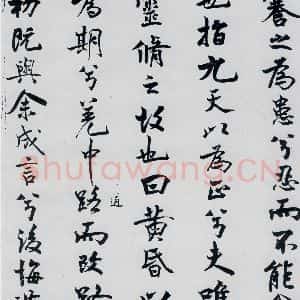 謇之為患兮忍而不能
也指九天以為正兮夫唯
靈脩之故也曰黃昏以
為期兮羌中路而改路
道
初既與余成言兮後悔
Shufawang.CN